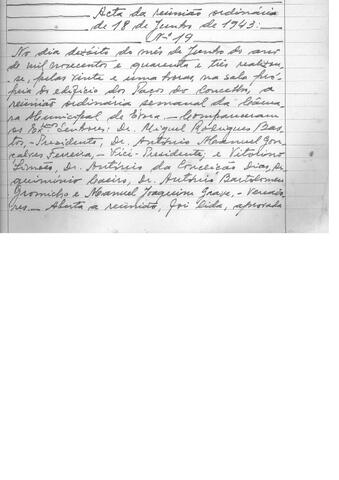 Acta da reunião ordinária
de 18 de Junho de 1943:
Nº 19
No dia dezóito do mês de Junho do ano
de mil novecentos e quarenta e três realizou-
se, pelas vinte e uma horas, na sala pró-
pria do edifício dos Paços do Concelho, a
reunião ordinária semanal da Câma-
ra Municipal de Évora. - Compareceram
os Exmos Senhores: Dr. Miguel Rodrigues Bas-
tos, - Presidente, Dr. António Manuel Gon-
çalves Ferreira, - Vice-Presidente, e Vitorino
Simões, Dr. António da Conceição Dias,
Caeiro, Dr. António Bartolomeu
Gromicho e Manuel Joaquim Grave, - Vereado-
res. - Aberta a reunião, foi lida, aprovada